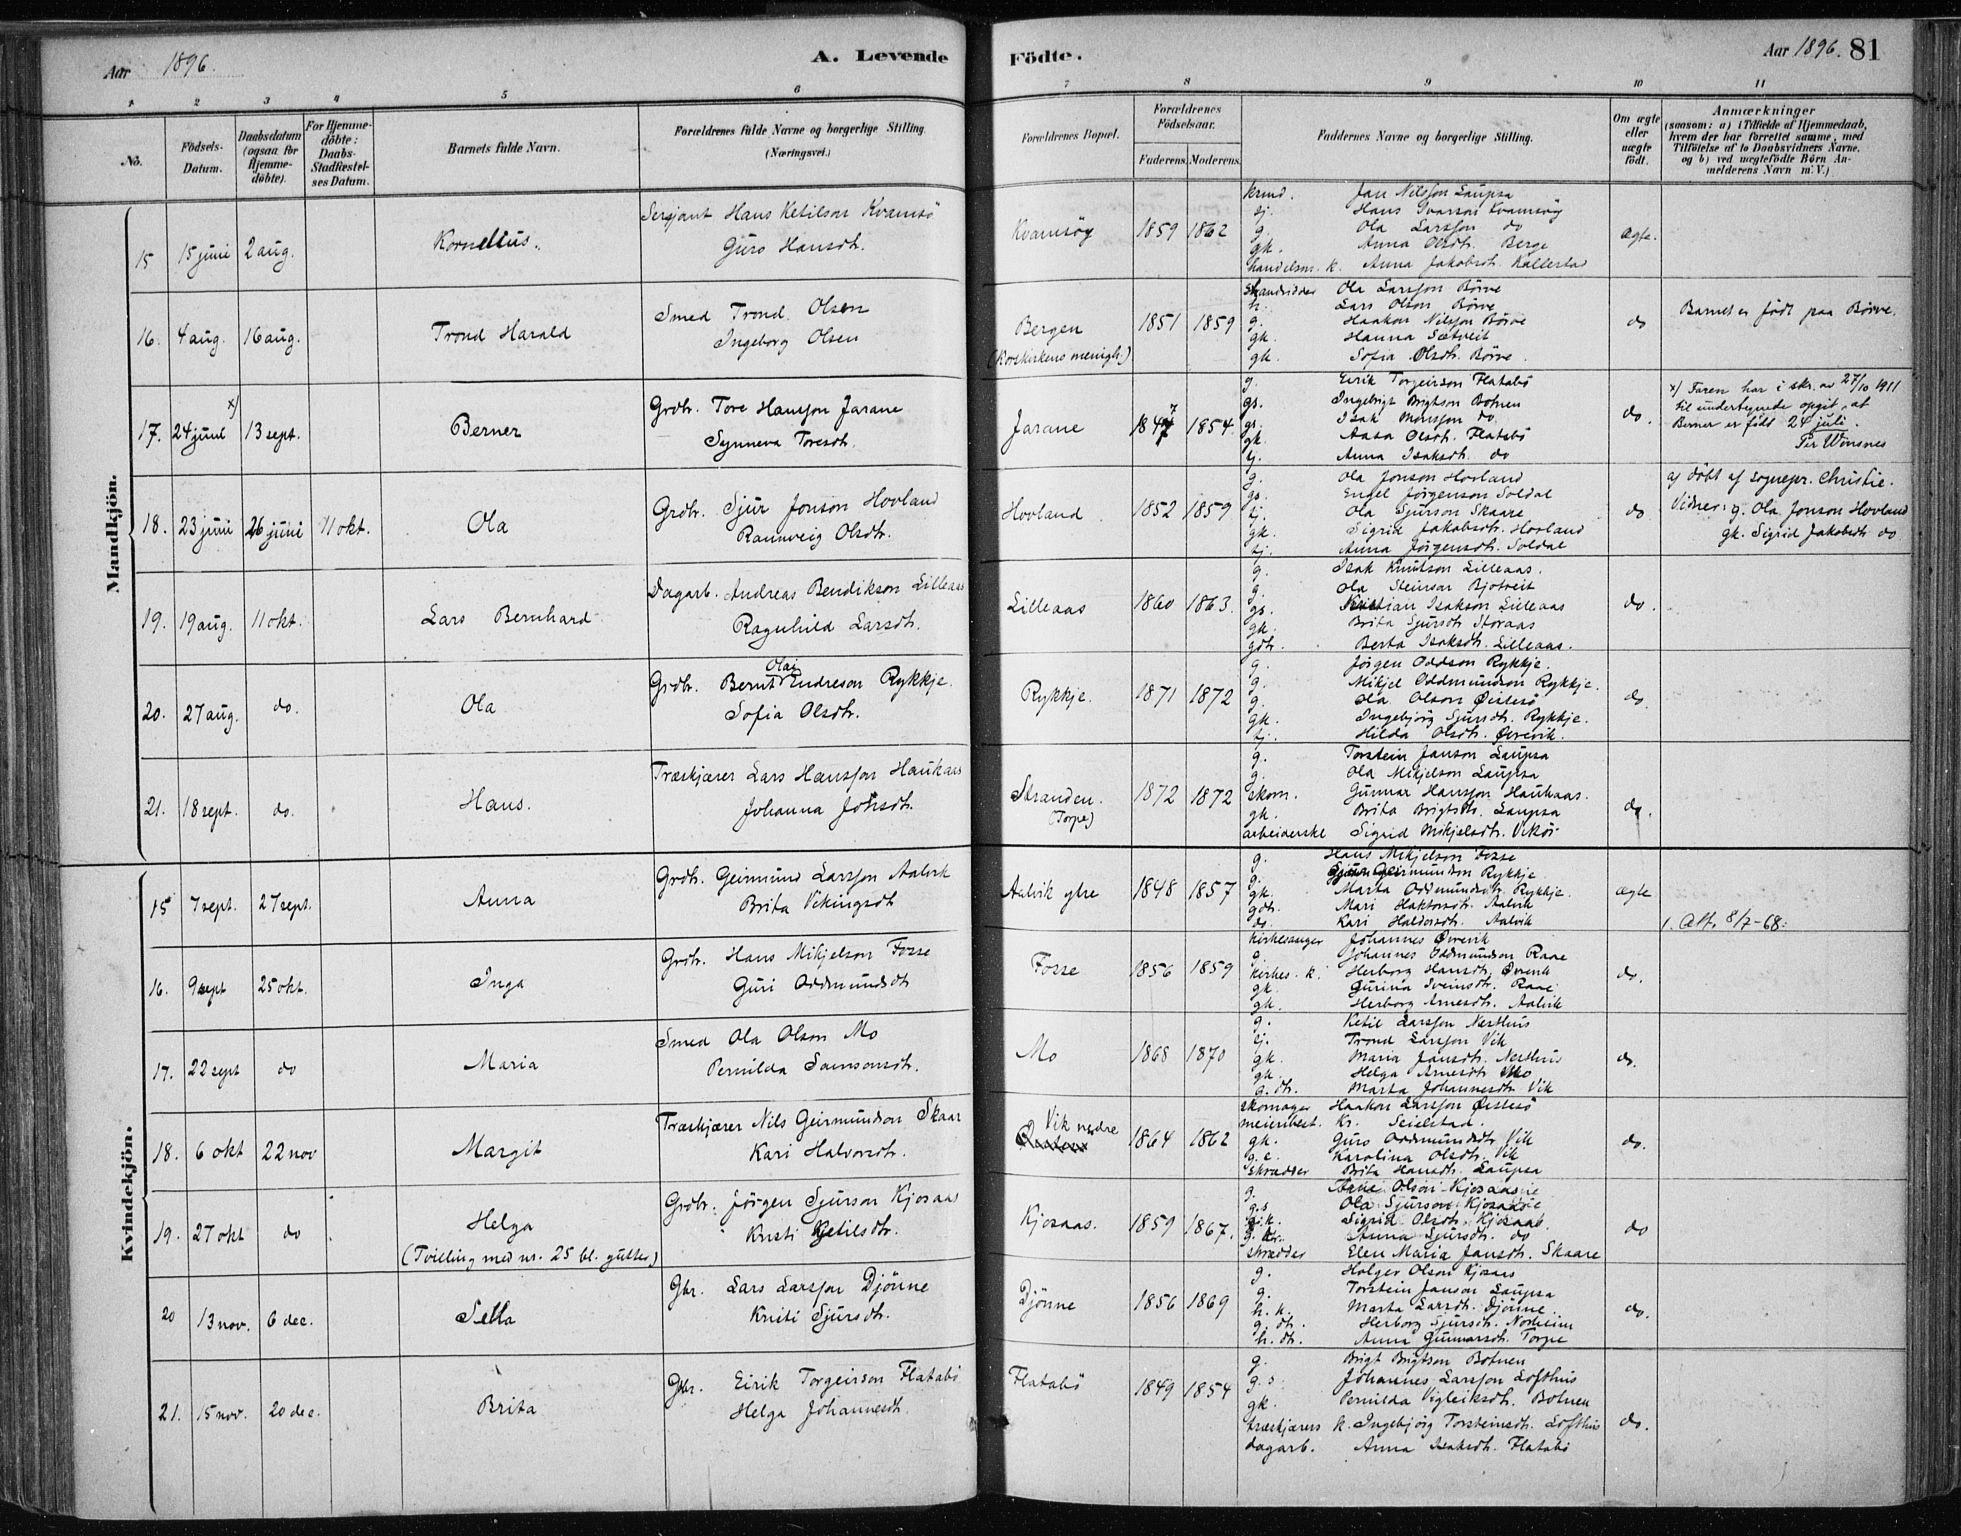 Aar 1896.
A. Levende
Födte.
Aar 1896. 81
1 2 3 4 5 6 7 8 9 10 11
No.
Födsels-Datum.
Daabsdatum (ogsaa for Hjemme-döbte).
For Hjemme-döbte: Daabs-Stadfæstel-ses Datum.
Barnets fulde Navn.
Forældrenes fulde Navne og borgerlige Stilling. (Næringsvei.)
Forældrenes Bopæl.
Forældrenes Födselsaar.
Faderens. Moderens.
Faddernes Navne og borgerlige Stilling.
Om ægte eller uægte födt.
Anmærkninger
(saasom: a) i Tilfælde af Hjemmedaab, hvem der har forrettet samme, med Tilföielse af to Daabsvidners Navne, og b) ved uægtefödte Börn An-melderens Navn m. V.)
Mandkjön.
15 15 juni 2 aug. Kornelius. Sergjant Hans Ketilson Kvamsö
Guro Hansdt.
Kvamsöy 1859 1862
Jan Nilsson Laupsa
tj. Hans Ivarson Kvamsöy
g. Ola Larsson do
gk. Anna Olsdt. Berge
handelsm. k. Anna Jakobsdt. Kallestad
ægte.
16. 4 aug. 16 aug. Trond Harald Smed Trond Olsen
Ingeborg Olsen
Bergen (Korskirkens menigh.) 1851 1859
Ola Larsson Börve
h. Lars Olson Börve
g. Haakon Nilsson Börve
gk. Hanna Sætveit
gk. Sofia Olsdt. Börve.
do
Barnet er födt paa Börve.
17. 24 juni x) 13 sept. Berner Grdbr. Tore Hansson Jarane
Synneva Toresdt.
Jarane 1847 1854
g. Eirik Torgeirson Flatabö
gs. Ingebrigt Brigtson Botnen
gs. Isak Monsson do
gk. Aasa Olsdt. Flatabö
tj. Anna Isaksdt. do
do.
x) Faren har i skr. av 27/10 1911
til undertegnede opgit, at
Berner er födt 24 juli.
Per Winsnes
18. 23 juni 26 juni 11 okt. Ola Grdbr. Sjur Jonson Hovland
Rannveig Olsdt.
Hovland 1852 1859
g. Ola Jonson Hovland
gs. Engel Jörgenson Soldal
tj. Ola Sjurson Skaare
gk. Sigrid Jakobsdt. Hovland
tj. Anna Jörgensdt. Soldal
do
a) döbt af sognepr. Christie.
Vidner: g. Ola Jonson Hovland
gk. Sigrid Jakobsdt do
19. 19 aug. 11 okt. Lars Bernhard Dagarb. Andreas Bendikson Lilleaas
Ragnhild Larsdt.
Lilleaas 1860 1863.
g. Isak Knutson Lilleaas.
g. Ola Steinson Bjotveit
gs. Kristian Isakson Lilleaas
gk. Brita Sjursdt Storaas
gdt. Berta Isaksdt. Lilleaas.
do.
20. 27 aug. do. Ola Grdbr. Bernt Olai Endreson Rykkje.
Sofia Olsdt.
Rykkje. 1871 1872
g. Jörgen Oddson Rykkje.
g. Mikjel Oddmundson Rykkje.
g. Ola Olson Öistesö
gk. Ingebjörg Sjursdt. Rykkje.
tj. Hilda Olsdt. Övrevik.
do
21. 18 sept. do. Hans. Træskjærer Lars Hansson Haukaas
Johanna Johsdt.
Stranden. (Torpe) 1872 1872
g. Torstein Janson Laupsa
g. Ola Mikjelson Laupsa
skom. Gunnar Hansson Haukaas.
gk. Brita Brigtsdt. Laupsa
arbeiderske Sigrid Mikjelsdt. Vikör
do.
Kvindekjön.
15 7 sept. 27 sept. Anna Grdbr. Geirmund Larsson Aalvik
Brita Vikingsdt
Aalvik ytre 1848 1857
g. Hans Mikjelson Fosse
g. Sjur Geirmundson Rykkje
gk. Marta Oddmundsdt. Rykkje.
gdt. Mari Haktorsdt. Aalvik
do. Kari Haldorsdt. Aalvik
ægte
1. Att. 8/7-68.
16. 9 sept 25 okt. Inga Grdbr. Hans Mikjelson Fosse
Guri Oddmundsdt
Fosse 1856 1859
kirkesanger Johannes Övrevik
g. Johannes Oddmundson Raae
kirkes. k. Herborg Hansdt. Övrevik
gk. Gurina Sveinsdt. Raae
gk. Herborg Arnesdt. Aalvik
do.
17. 22 sept do Maria Smed Ola Olson Mo
Pernilda Samsonsdt.
Mo 1868 1870
g. Ketil Larsson Nesthus
tj. Trond Larsson Vik
gk. Maria Jansdt. Nesthus
gk. Helga Arnesdt Mo
g.dt. Marta Johannesdt Vik
do.
18. 6 okt 22 nov Margit Træskjærer Nils Geirmundson Skaar
Kari Halvorsdt.
Vik nedre 1864 1862
skomager Haakon Larsson Öistesö
meieribest. Kr. Seielstad.
gk. Guro Oddmundsdt Vik
g.e. Karolina Olsdt. Vik
skrædder Brita Hansdt. Laupsa
do.
19. 27 okt do Helga
(Tvilling med nr. 25 bl. gutter)
Grdbr. Jörgen Sjurson Kjosaas
Kristi Ketilsdt.
Kjosaas. 1859 1867.
g. Arne Olson Kjosaas
g.s Ola Sjurson Kjosaas
Sigrid Olsdt. Kjosaas.
Anna Sjursdt. do
skrædder Elen Maria Jansdt. Skaare
do
20 13 nov. 6 dec. Sella Gbr. Lars Larsson Djönne
Kristi Sjursdt.
Djönne 1856 1869
g. Holger Olson Kjosaas
g. Torstein Janson Laupsa
h.k. Marta Larsdt. Djönne.
g.dt. Herborg Sjursdt. Norheim
h.dt. Anna Gunnarsdt. Torpe
do.
21. 15 nov. 20 dec. Brita Gbr. Eirik Torgeirson Flatabö
Helga Johannesdt.
Flatabö 1849 1854
g. Brigt Brigtson Botnen
g.s. Johannes Larsson Lofthus
gk. Pernilda Vigleiksdt. Botnen
træskjærers k. Ingebjörg Torsteinsdt. Lofthus
dagarb. Anna Isaksdt. Flatabö
do.